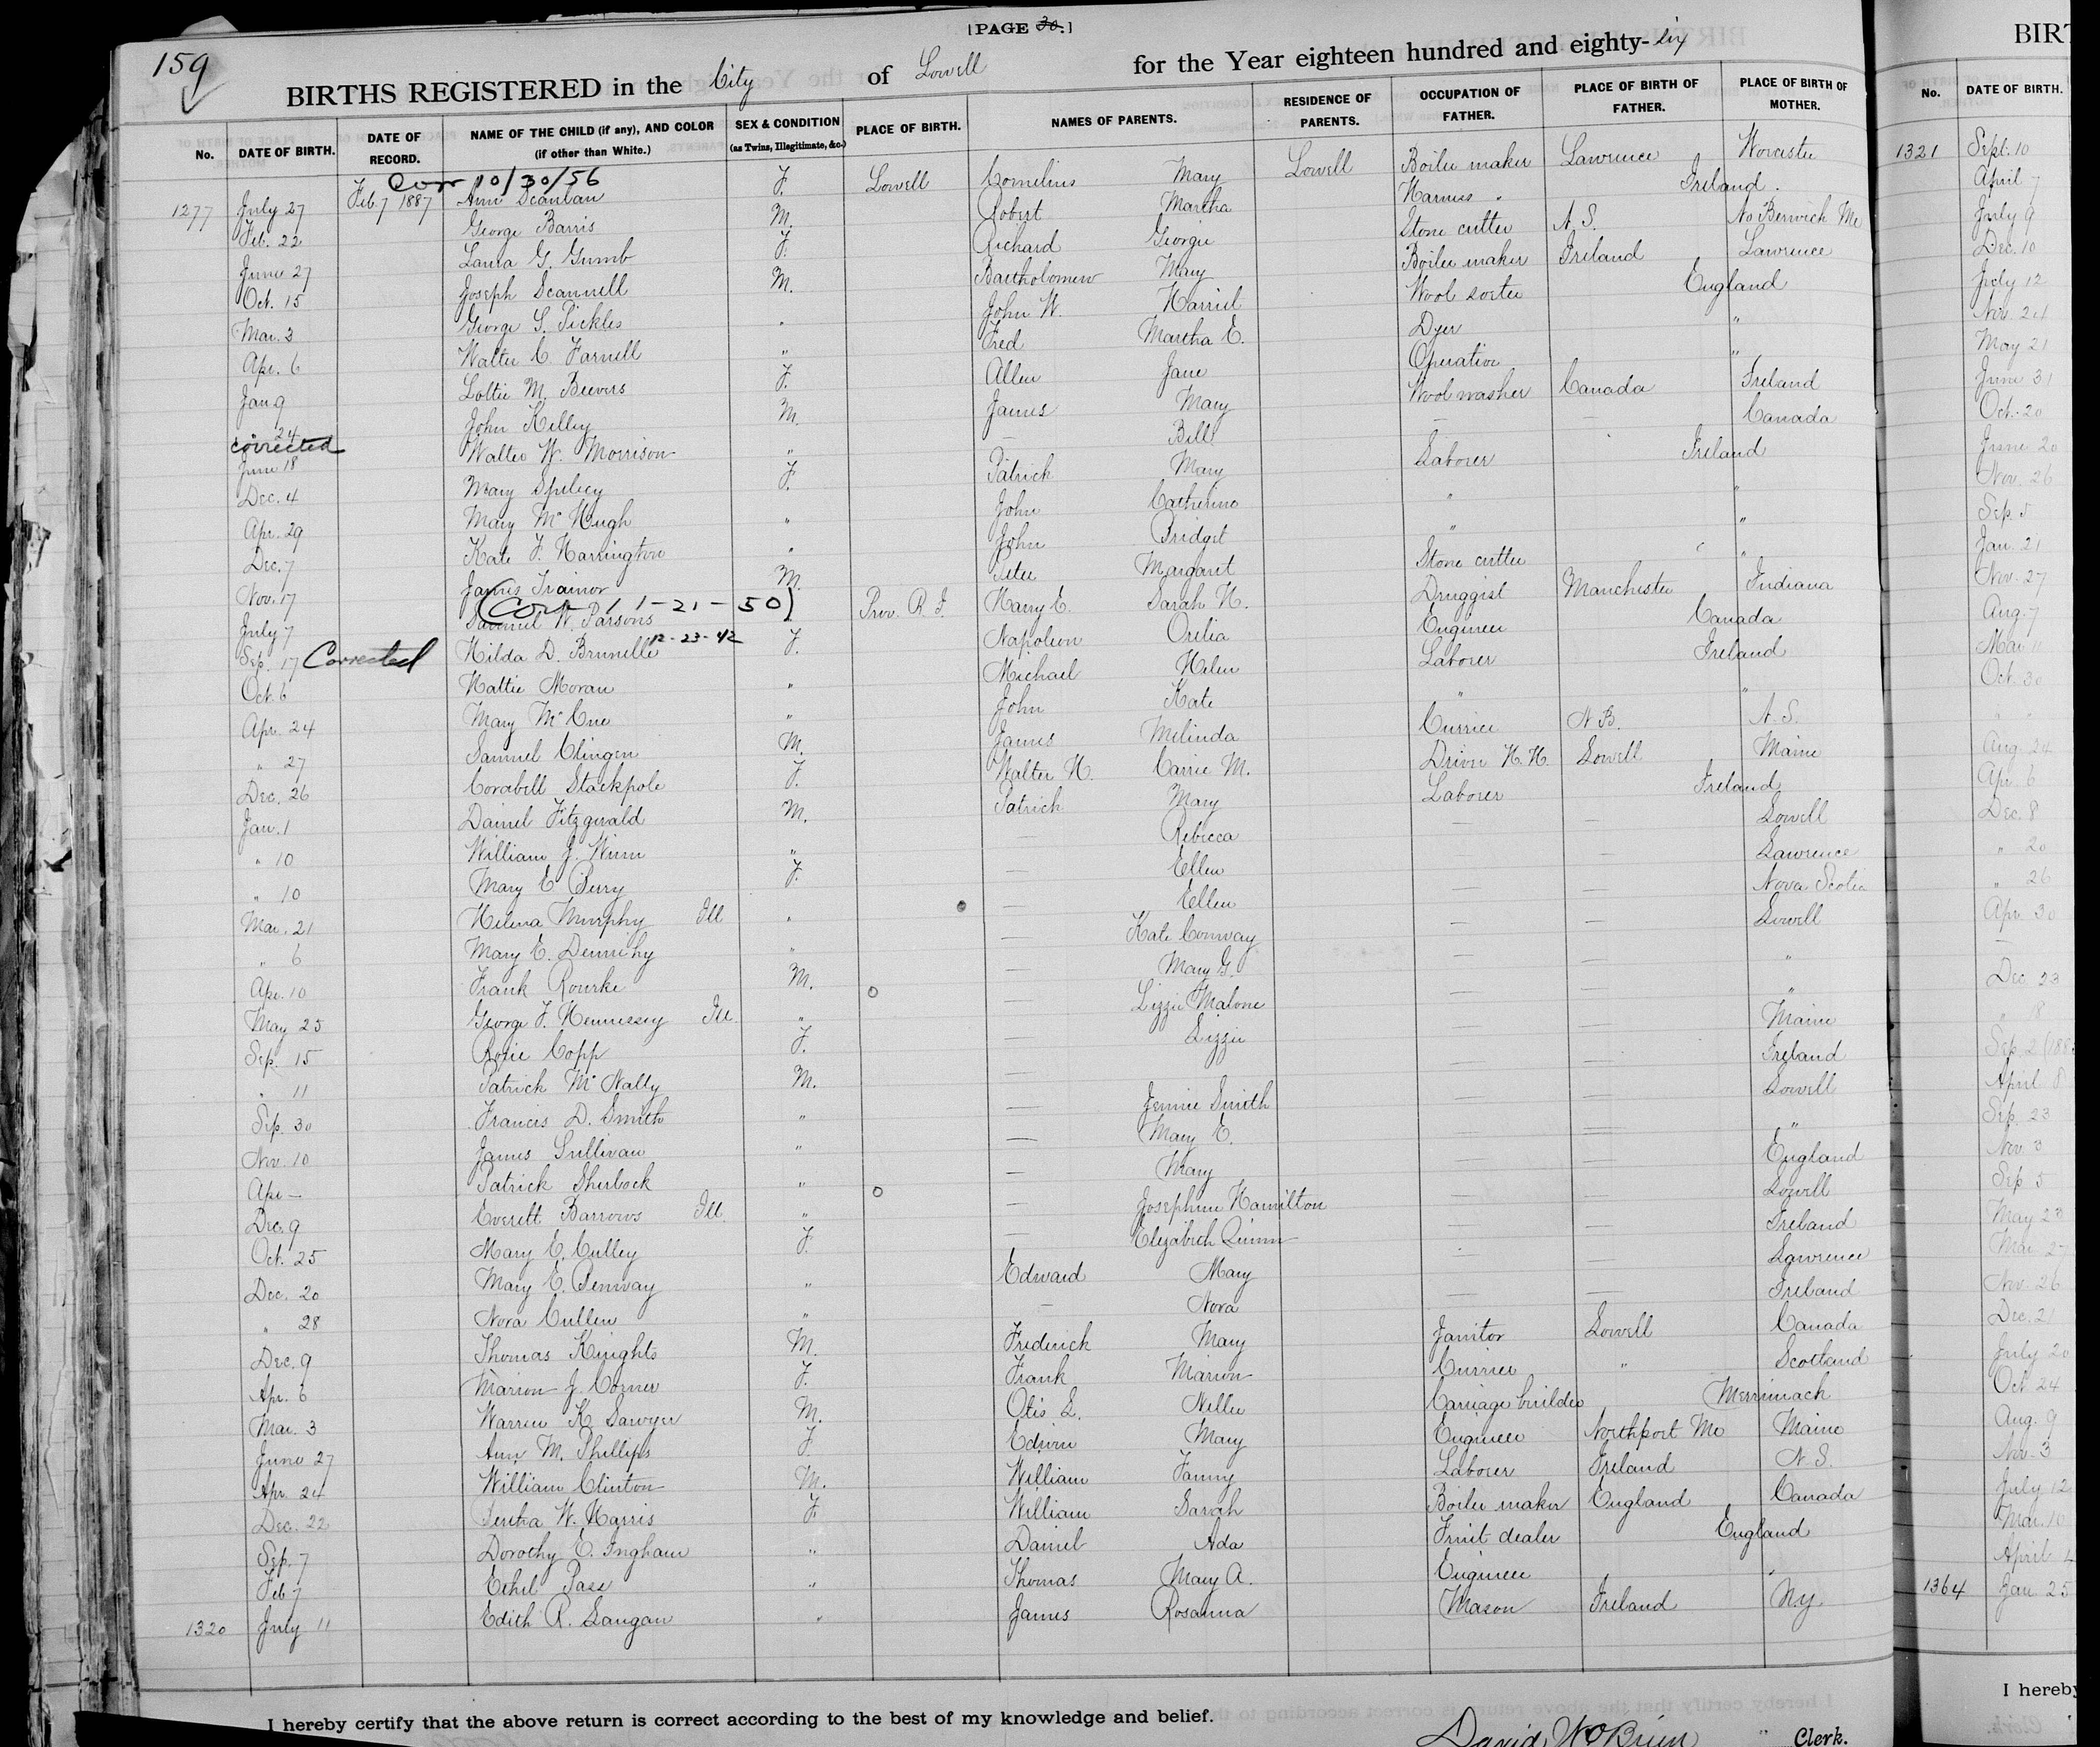 [PAGE 30.]
159
BIRTHS REGISTERED in the City of Lowell for the Year eighteen hundred and eighty-six
No. DATE OF BIRTH. DATE OF RECORD. NAME OF THE CHILD (if any), AND COLOR (if other than White.) SEX & CONDITION (as Twins, Illegitimate, &c.) PLACE OF BIRTH. NAMES OF PARENTS. RESIDENCE OF PARENTS. OCCUPATION OF FATHER. PLACE OF BIRTH OF FATHER. PLACE OF BIRTH OF MOTHER.
Corr 10/30/56
1277 July 27 Feb 7 1887 Ann Scanlan F. Lowell Cornelius Mary Lowell Boiler maker Lawrence Worcester
Feb. 22 George Barris M. Robert Martha Harness " Ireland
June 27 Laura G. Gumb F. Richard Georgie Stone cutter N.S. No Berwick Me
Oct. 15 Joseph Scannell M. Bartholomew Mary Boiler maker Ireland Lawrence
Mar. 3 George S. Pickles " John W. Harriet Wool sorter England
Apr. 6 Walter C. Farnell " Fred Martha E. Dyer "
Jan 9 Lottie M. Beevers F. Allen Jane Operative "
" 24 John Kelley M. James Mary Wool washer Canada Ireland
corrected
June 18 Walter W. Morrison " — Bell — — Canada
Dec. 4 Mary F. Patrick Mary Laborer Ireland
Apr. 29 Mary McHugh " John Catherine " "
Dec. 7 Kate F. Harrington " John Bridget " "
Nov. 17 James Trainor M. Peter Margaret Stone cutter "
(Corr 11-21-50)
July 7 Samuel W. Parsons Prov. R.I. Harry E. Sarah H. Druggist Manchester Indiana
12-23-42
Sep. 17 Corrected Hilda D. Brunelle F. Napoleon Orilia Engineer Canada
Oct. 6 Hattie Moran " Michael Helen Laborer Ireland
Apr. 24 Mary McCue " John Kate " "
" 27 Samuel Clingen M. James Melinda Currier N.B. N.S.
Dec. 26 Corabell Stackpole F. Walter H. Carrie M. Driver H.H. Lowell Maine
Jan. 1 Daniel Fitzgerald M. Patrick Mary Laborer Ireland
" 10 William J. Winn " — Rebecca — — Lowell
" 10 Mary E. Perry F. — Ellen — — Lawrence
Mar. 21 Helena Murphy Ill " — Ellen — — Nova Scotia
" 6 Mary E. Dennehy " — Kate Conway — — Lowell
Apr. 10 Frank Rourke M. — Mary G. — — "
May 25 George F. Hennessey Ill. " — Lizzie Malone — — "
Sep. 15 Rosie Copp F. — Lizzie — — Maine
" 11 Patrick McNally M. — — — Ireland
Sep. 30 Francis D. Smith " — Jennie Smith — — Lowell
Nov. 10 James Sullivan " — Mary E. — — "
Apr — Patrick Sherlock " — Mary — — England
Dec. 9 Everett Barrows Ill. " — Josephine Hamilton — — Lowell
Oct. 25 Mary E. Culley F. — Elizabeth Quinn — — Ireland
Dec. 20 Mary E. Penway " Edward Mary — — Lawrence
" 28 Nora Cullen " — Nora — — Ireland
Dec. 9 Thomas Knights M. Frederick Mary Janitor Lowell Canada
Apr. 6 Marion J. Comer F. Frank Marion Currier " Scotland
Mar. 3 Warren K. Sawyer M. Otis L. Nellie Carriage builder Merrimack
June 27 Ann M. Phillips F. Edwin Mary Engineer Northport Me Maine
Apr. 24 William Clinton M. William Fanny Laborer Ireland N.S.
Dec. 22 W. Harris F. William Sarah Boiler maker England Canada
Sep. 7 Dorothy E. Ingham " Daniel Ada Fruit dealer England
Feb 7 Ethel Pass " Thomas Mary A. Engineer "
1320 July 11 Edith R. Langan " James Rosanna Mason Ireland N.Y.
I hereby certify that the above return is correct according to the best of my knowledge and belief.
David W O'Brien " Clerk.
BIRT
No. DATE OF BIRTH.
1321 Sept. 10
April 7
July 9
Dec. 10
July 12
Nov. 24
May 21
June 31
Oct. 20
June 20
Nov. 26
Sep. 5
Jan. 21
Nov. 27
Aug. 7
Mar 11
Oct. 30
Aug. 24
Apr. 6
Dec. 8
" 20
" 26
Apr. 30
—
Dec. 23
" 18
Sep. 2
April 8
Sep. 23
Nov. 3
Sep. 5
May 23
Nov. 26
Dec. 21
July 20
Oct 24
Aug. 9
Nov. 3
July 12
Mar. 10
April
1364 Jan. 25
I hereby